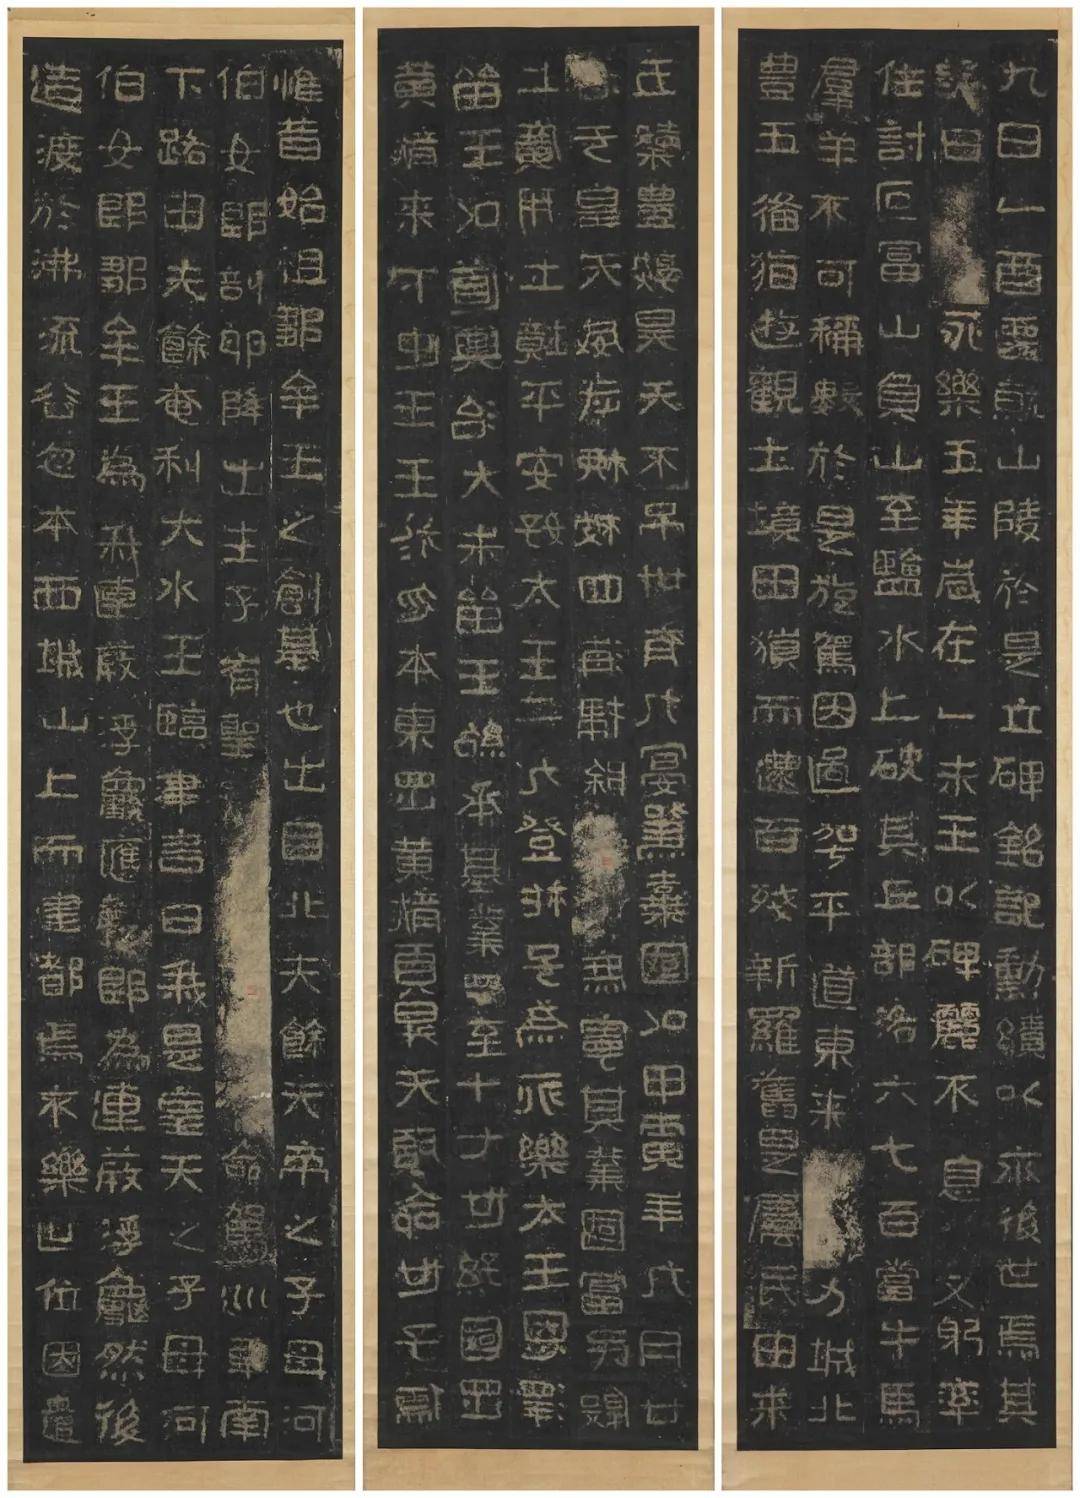 惟昔始祖鄒牟王之創基也出自北夫餘天帝之子母河
伯女郎剖卵降出生子有聖命駕巡車南
下路由夫餘奄利大水王臨津言曰我是皇天之子母河
伯女郎鄒牟王為我連葭浮龜應聲即為連葭浮龜然後
造渡於沸流谷忽本西城山上而建都焉永樂世位因遣
黃龍來下迎王王於忽本東罡黃龍負昇天顧命世子儒
留王以道興治大朱留王紹承基業遝至十七世孫國罡
上廣開土境平安好太王二九登祚号為永樂太王恩澤
于皇天威武振被四海掃除庶寧其業國富民殷
五穀豊熟昊天不弔卅有九宴駕棄國以甲寅年九月廿
九日乙酉遷就山陵於是立碑銘記勳績以示後世焉其
詞曰永樂五年歲在乙未王以碑麗不息又躬率
住討叵富山負山至鹽水上破其丘部洛六七百當牛馬
羣羊不可稱數於是旋駕因過平道東来力城北
豊五備猶遊觀土境田獵而還百殘新羅舊是屬民由来